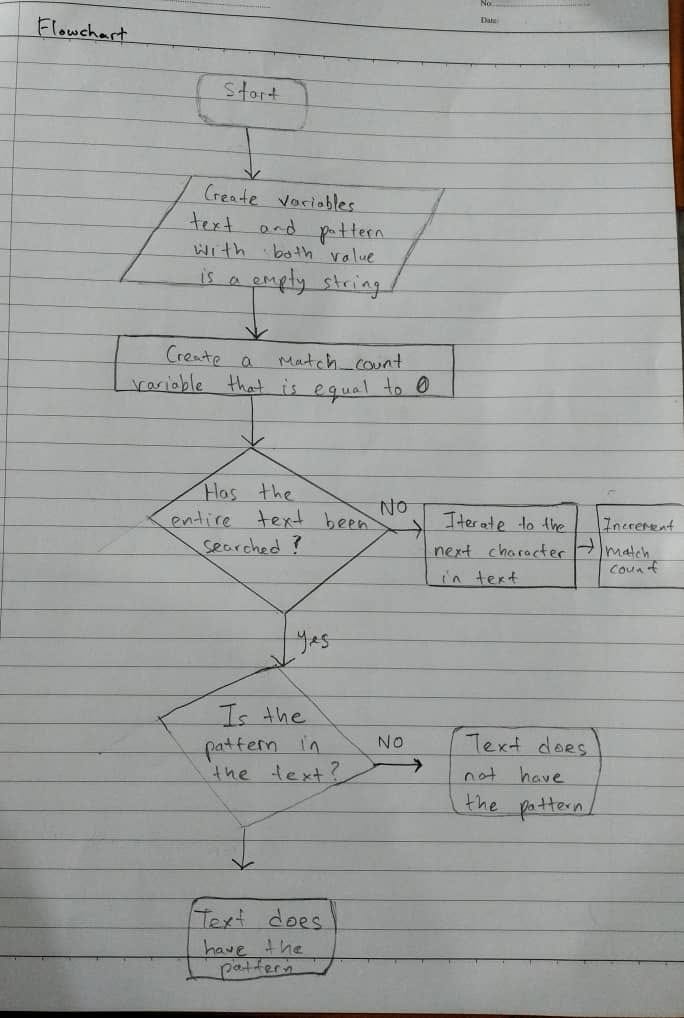 No
Date:
Flowchart
Start
Create variables
text and pattern
with both value
is a empty string
Create a match_count
variable that is equal to 0
Has the
entire text been
searched?
NO
Iterate to the
next character
in text
Increment
match
count
yes
Is the
pattern in
the text?
NO
Text does
not have
the pattern
Text does
have the
pattern